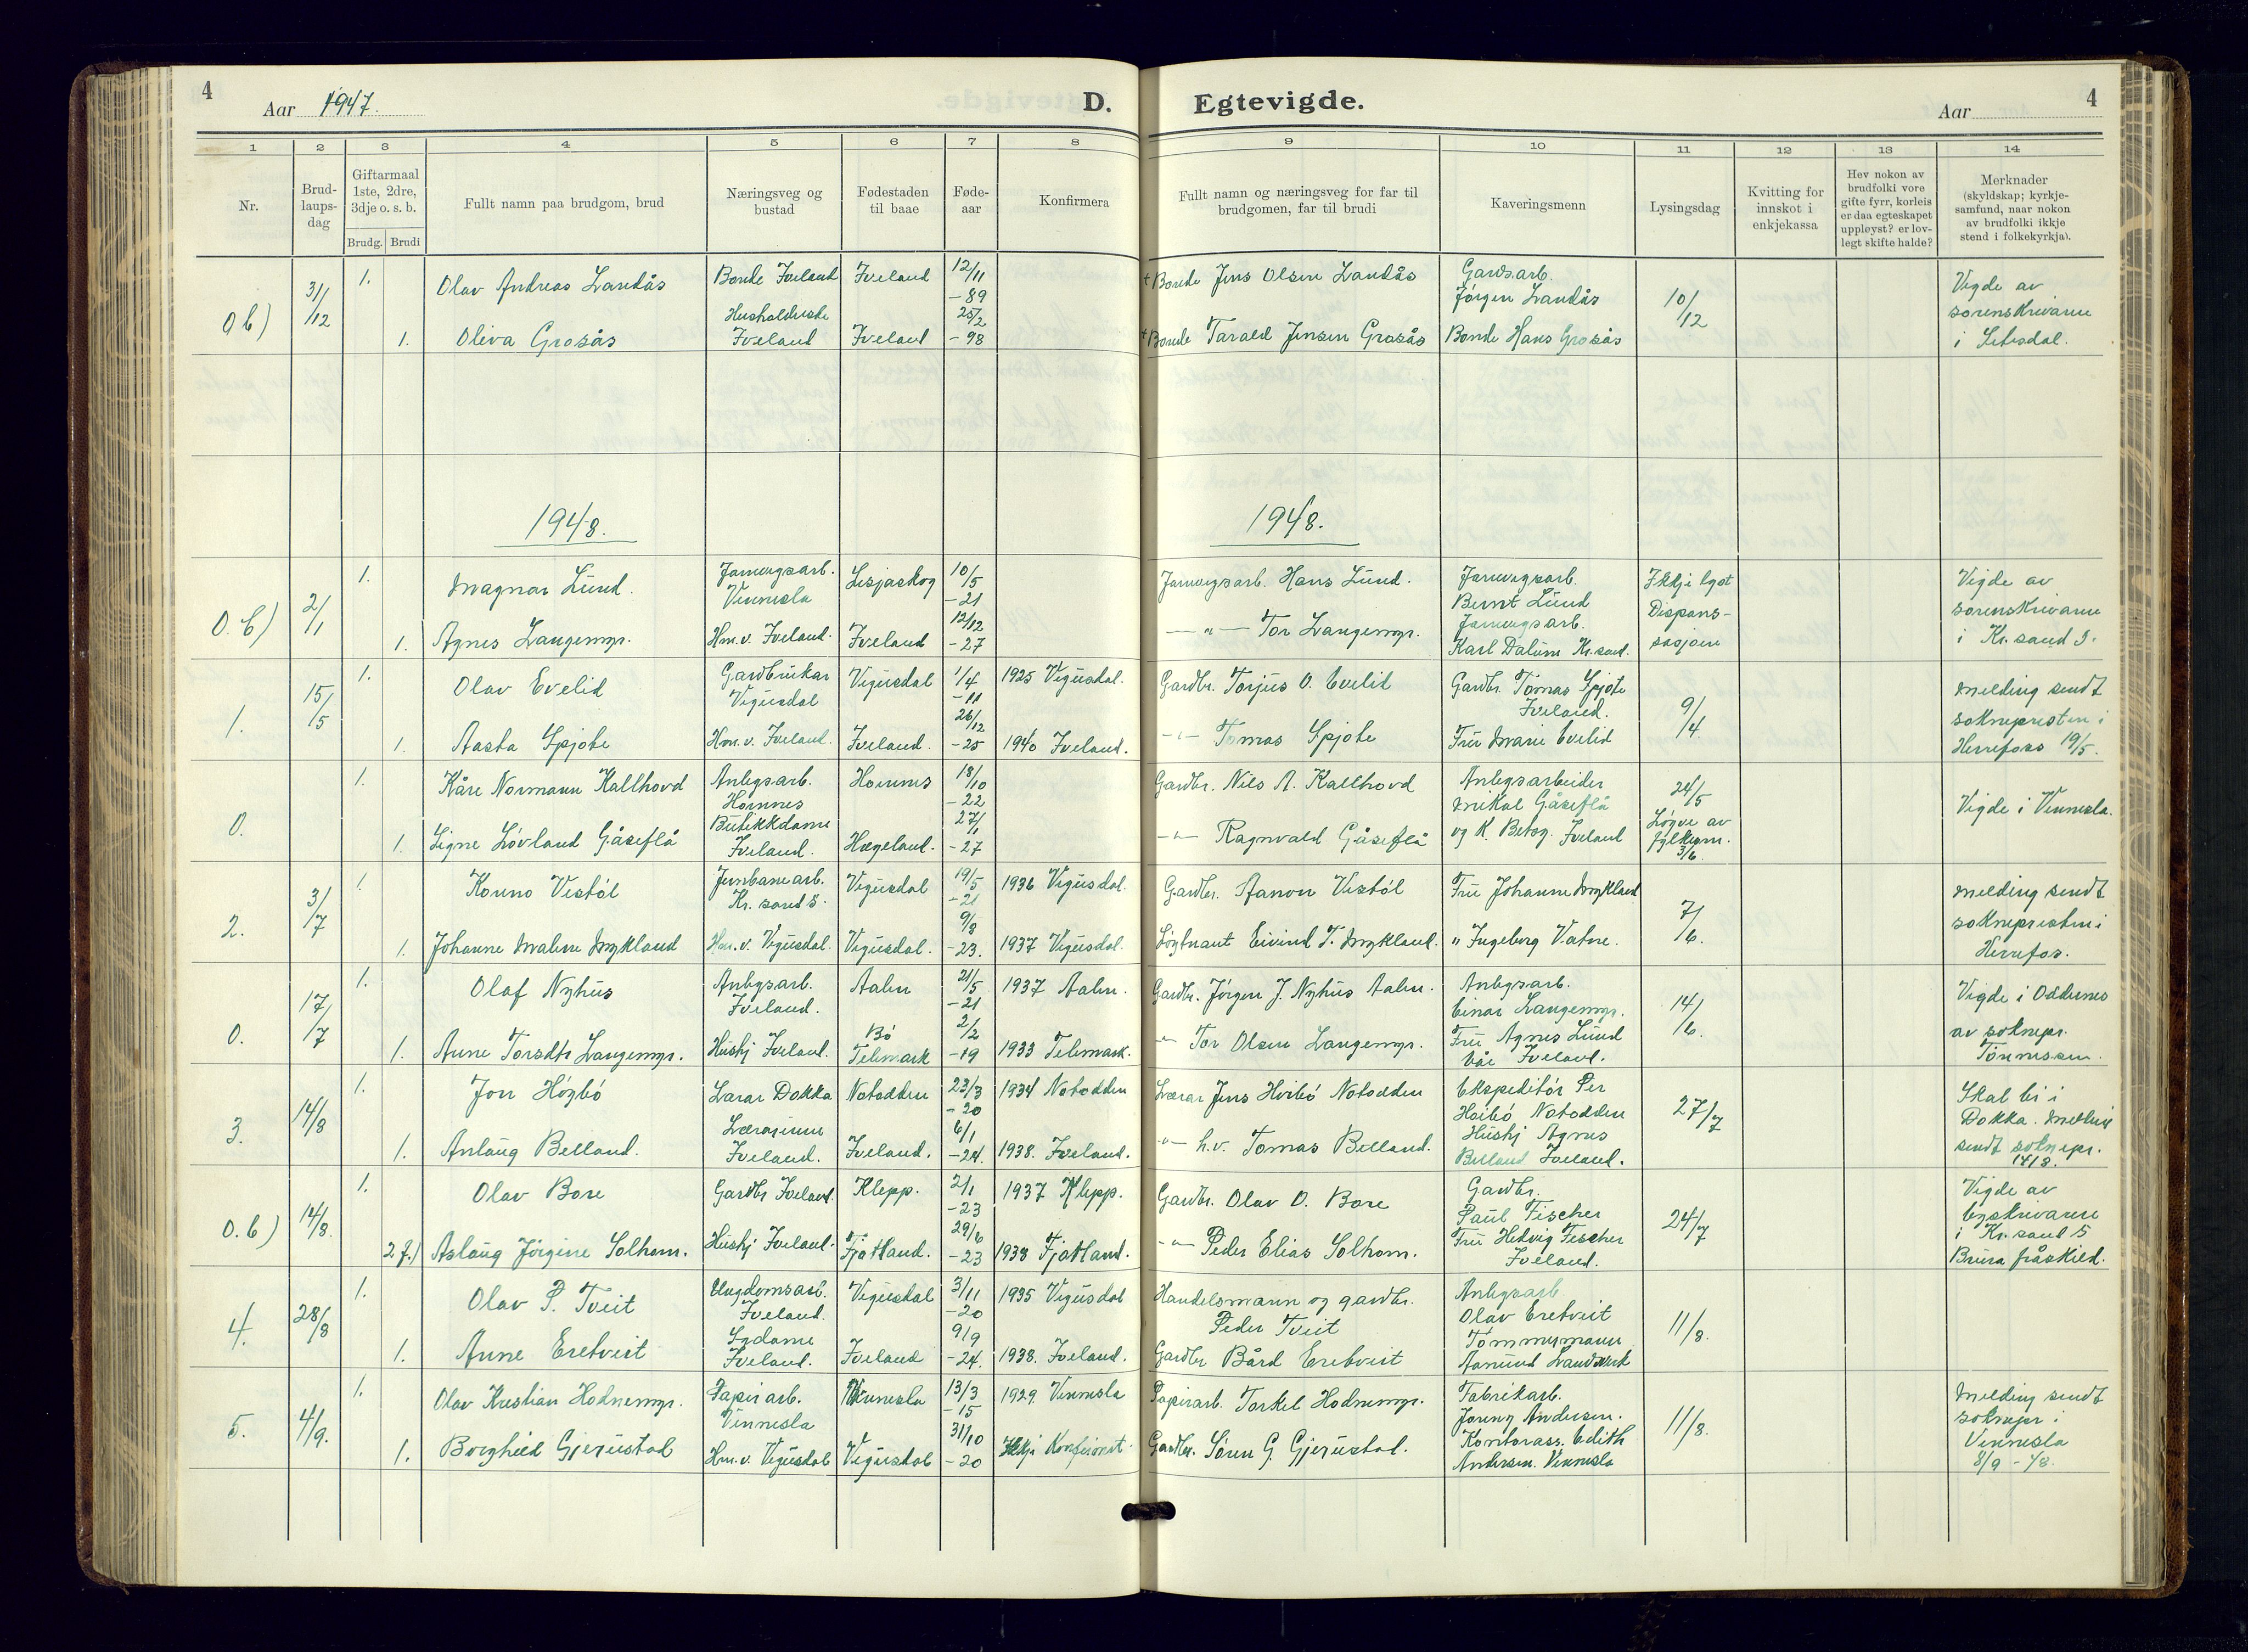 4
Aar 1947.
D. Egtevigde.
Aar
4
1 2 3 4 5 6 7 8 9 10 11 12 13 14
Nr.
Brud-
laups-
dag
Giftarmaal
1ste, 2dre,
3dje o. s. b.
Brudg. Brudi
Fullt namn paa brudgom, brud
Næringsveg og
bustad
Fødestaden
til baae
Føde-
aar
Konfirmera
Fullt namn og næringsveg for far til
brudgomen, far til brudi
Kaveringsmenn
Lysingsdag
Kvitting for
innskot i
enkjekassa
Hev nokon av
brudfolki vore
gifte fyrr, korleis
er daa egteskapet
uppløyst? er lov-
legt skifte halde?
Merknader
(skyldskap; kyrkje-
samfund, naar nokon
av brudfolki ikkje
stend i folkekyrkja).
0 b) 31/12
1. Olav Andreas Landås Bonde Iveland Iveland 12/11 -89 + Bonde Jens Olsen Landås Gardsarb. Jørgen Landås 10/12
1. Oliva Grosås Husholderske Iveland Iveland 25/2 -98 + Bonde Tarald Jensen Grosås Bonde Hans Grosås
Vigde av
sorenskrivaren
i Setesdal.
1948. 1948.
0. b) 2/1
1. Magnar Lund. Jarnvegsarb. Vennesla Lesjaskog 10/5 -21 Jarnvegsarb. Hans Lund. Jarnvegsarb. Bernt Lund Ikkje lyst
1. Agnes Langemyr. Hm. v. Iveland. Iveland 12/12 -27 — " — Tor Langemyr. Jarnvegsarb. Karl Dalum Kr.sand. Dispens-
sasjon
Vigde av
sorenskrivaren
i Kr. sand S.
1. 15/5
1. Olav Evelid Gardbrukar Vegusdal Vegusdal 1/4 -11 1925 Vegusdal. Gardbr. Torjus O. Evelid Gardbr. Tomas Spjote Iveland. 9/4
1. Aasta Spjote Hm. v. Iveland. Iveland. 26/12 -25 1940 Iveland. — " — Tomas Spjote Fru Marie Evelid
Melding sendt
soknepresten i
Herefoss 19/5.
0.
1. Kåre Normann Kallhovd Anlegsarb. Hornnes Hornnes 18/10 -22 Gardbr. Nils A. Kallhovd Anlegsarbeider Mikal Gåseflå 24/5
1. Signe Løvland Gåseflå Butikkdame Iveland. Hægeland. 27/1 -27 — " — Ragnvald Gåseflå og K. Iveland Løyve av
fylkesm.
3/6.
Vigde i Vennesla.
2. 3/7
1. Konno Vestøl Jernbanearb. Kr. sand S. Vegusdal 19/5 -21 1936 Vegusdal. Gardbr. Aanon Vestøl Fru Johanne Mykland 7/6.
1. Johanne Malene Mykland Hm. v. Vegusdal. Vegusdal. 9/8 -23. 1937 Vegusdal. Løytnant Eivind T. Mykland. " Ingeborg Vatne.
Melding sendt
soknepresten i
Herefos.
0. 17/7
1. Olaf Nyhus Anlegsarb. Iveland. Aalen 21/5 -21 1937 Aalen. Gardbr. Jørgen J. Nyhus Aalen. Anlegsarb. Einar Langemyr. 14/6.
1. Anne Torsdtr Langemyr. Hushj Iveland. Bø Telemark 2/2 -19 1933 Telemark. — " — Tor Olsen Langemyr. Fru Agnes Lund Iveland.
Vigde i Oddernes
av soknepr.
Tønnessen.
3. 14/8
1. Jon Høybø Lærar Dokka Notodden 23/3 -20 1934 Notodden Lærar Jens Høibø Notodden Ekspeditør Per Høibø Notodden 27/7
1. Anlaug Belland. Lærarinne Iveland. Iveland. 6/1 -24. 1938. Iveland. — " — h.v. Tomas Belland. Hushj Agnes Belland Iveland.
Skal bu i
Dokka. Melding
sendt soknepr.
14/8.
0. b) 14/8.
1. Olav Bore Gardbr Iveland Klepp. 2/1 -23 1937 Klepp. Gardbr. Olav O. Bore Gardbr. Paul Fischer 24/7
2 f.) Aslaug Jørgine Solhom. Hushj Iveland. Fjotland. 29/6 -23 1938 Fjotland. — " — Peder Elias Solhom. Fru Hedvig Fischer Iveland.
Vigde av
byskrivaren
i Kr. sand S
Brura fråskild.
4. 28/8
1. Olav P. Tveit Ungdomsarb. Iveland. Vegusdal 3/11 -20 1935 Vegusdal Handelsmann og gardbr. Peder Tveit Anlegsarb Olav Eretveit 11/8.
1. Anne Eretveit Sydame Iveland. Iveland 9/9 -24. 1938. Iveland. Gardbr Bård Eretveit Tømmermann Aamund Landverk
5. 4/9.
1. Olav Kristian Hodnemyr. Papirarb. Vennesla Vennesla 13/3 -15 1929. Vennesla Papirarb. Torkel Hodnemyr. Fabrikarb. Andersen. 11/8.
1. Borghild Gjerustad Hm. v. Vegusdal Vegusdal 31/10 -20 Ikkje Konfirmert. Gardbr. Sønn G. Gjerustad. Kontorass. Edith Andersen. Vennesla
Melding sendt
soknepr i
Vennesla
8/9 - 48.